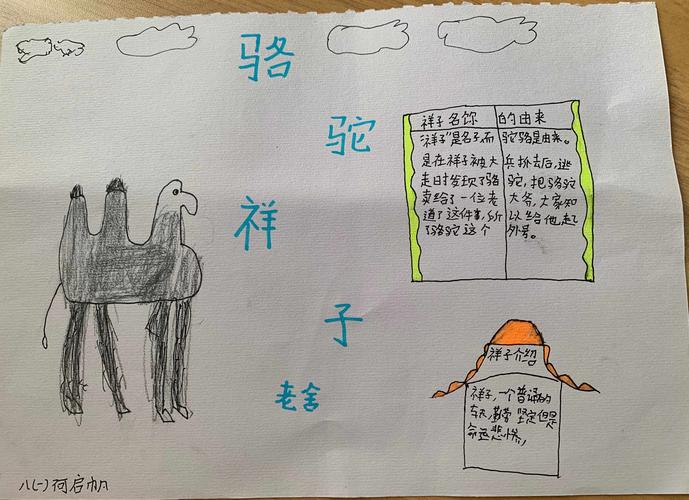 骆
驼
祥
子
老舍
祥子名称的由来
"祥子"是名子,而骆驼是由来。
是在祥子被大兵抓去后,逃
走时发现了骆驼,把骆驼
卖给了一位老大爷,大家知
道了这件事,所以给他起
了骆驼这个外号。
祥子介绍
祥子,一个普通的
车夫,勤劳坚定但是
命运悲惨,
八(一)何启帆